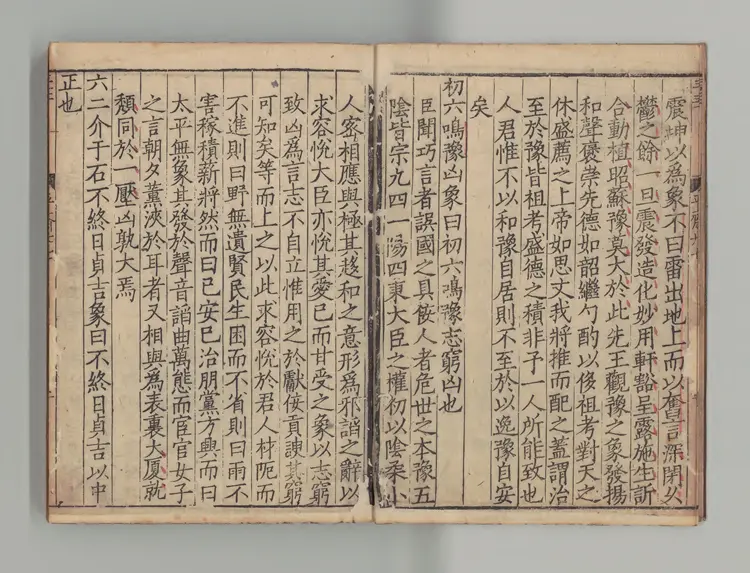 震坤以為象不曰雷出地上而以奮言深閉久
鬱之餘一旦震發造化妙用軒豁呈露施生訢
合動植昭蘇豫莫大於此先王觀豫之象發揚
和聲褒崇先德如韶繼勺酌以後祖考對天之
休盛薦之上帝如思文我將推而配之蓋謂治
至於豫皆祖考盛德之積非予一人所能致也
人君惟不以和豫自居則不至於以逸豫自安
矣
初六鳴豫凶象曰初六鳴豫志窮凶也
臣聞巧言者誤國之具佞人者危世之本豫五
陰皆宗九四一陽四東大臣之權初以陰柔小
人密相應與極其趍和之意形為邪謟之辭以
求容悅大臣亦悅其愛已而甘受之象以志窮
致凶為言志不自立惟用之於獻佞貢諛其窮
可知矣等而上之以此求容悅於君人材阨而
不進則曰野無遺賢民生困而不省則曰雨不
害稼積薪將然而曰已安已治朋黨方興而曰
太平無象其發於聲音謟曲萬態而宦官女子
之言朝夕薰浹於耳者又相與為表裏大厦就
頹同於一壓凶孰大焉
六二介于石不終日貞吉象曰不終日貞吉以中
正也